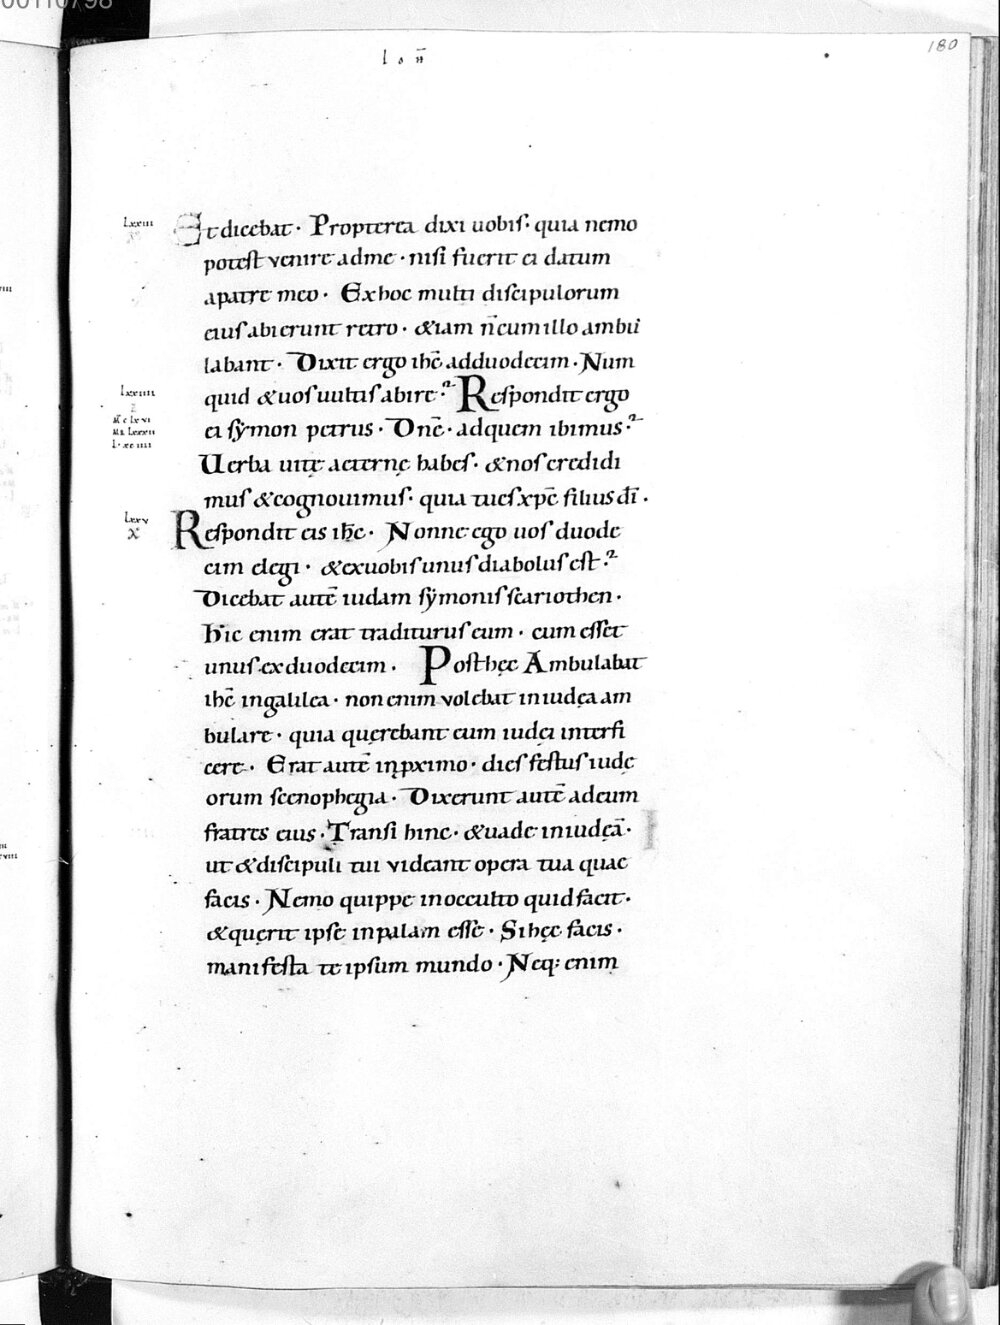 00110798
180
Ioh̄
lxxiii
Et dicebat· Propterea dixi uobis· quia nemo
potest venire adme· nisi fuerit ei datum
apatre meo· Exhoc multi discipulorum
eius abierunt retro· &iam n̄ cum illo ambu
labant· Dixit ergo ihc̄ adduodecim· Num
lxxiiii
quid &uos uultis abire? Respondit ergo
ei symon petrus· Dn̄e· adquem ibimus?
Uerba uitę aeternę habes· &nos credidi
mus &cognouimus· quia tu es xpc̄ filius dī·
lxxv
x
Respondit eis ihc̄· Nonne ego uos duode
cim elegi· &exuobis unus diabolus est?
Dicebat autē iudam symonis scariothen·
Hic enim erat traditurus eum· cum esset
unus ex duodecim· Posthęc Ambulabat
ihc̄ ingalilea· non enim volebat iniudęa am
bulare· quia quęrebant eum iudęi interfi
cere· Erat autē inproximo· dies festus iudę
orum scenophegia· Dixerunt autē adeum
fratres eius· Transi hinc· &uade iniudęā·
ut &discipuli tui videant opera tua quae
facis· Nemo quippe inocculto quid facit·
&quęrit ipse inpalam esse· Si hęc facis·
manifesta te ipsum mundo· Neq; enim